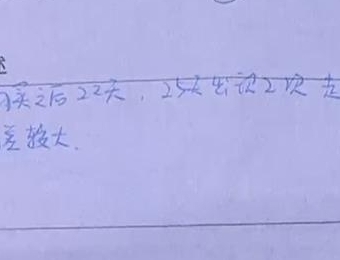 天之后22天，25天出现2次
差较大.